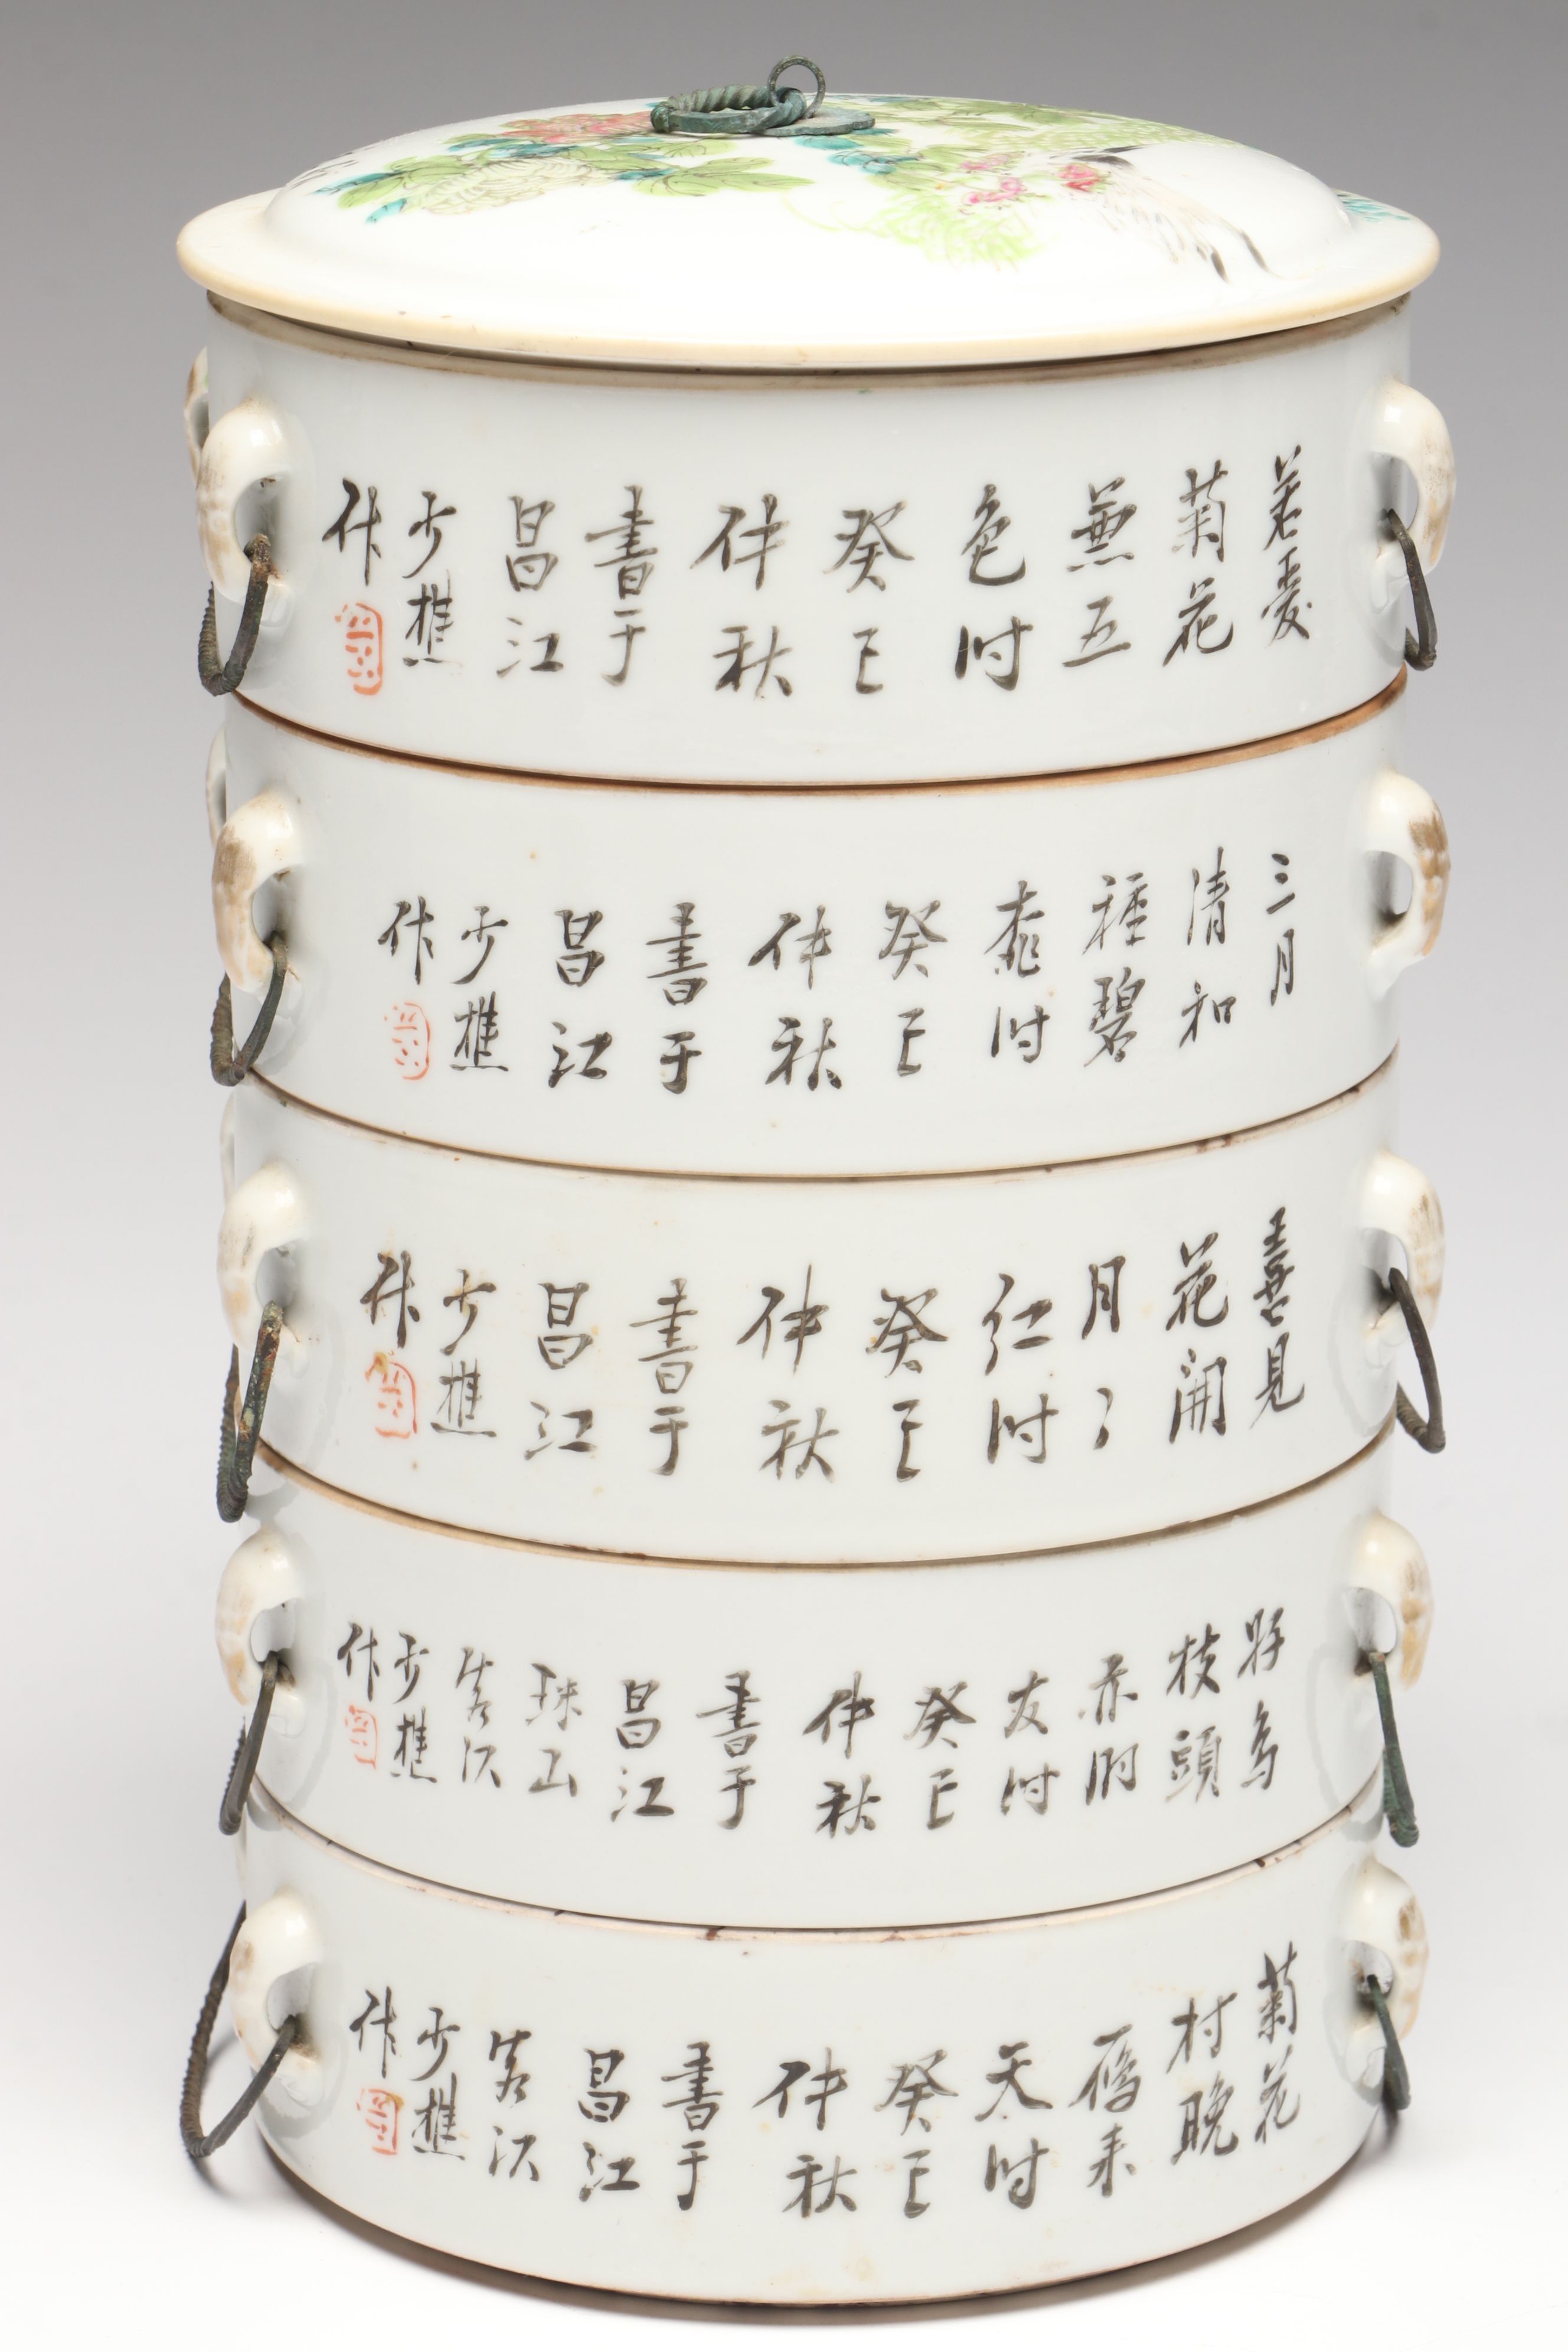 若愛
菊花
無五
色时
癸巳
仲秋
書于
昌江
少樵
作
三月
清和
種碧
桃时
癸巳
仲秋
書于
昌江
少樵
作
喜見
花開
月々
紅时
癸巳
仲秋
書于
昌江
少樵
作
好鳥
枝頭
亦朋
友时
癸巳
仲秋
書于
昌江
珠山
客次
少樵
作
菊花
村晚
雁来
天时
癸巳
仲秋
書于
昌江
客次
少樵
作